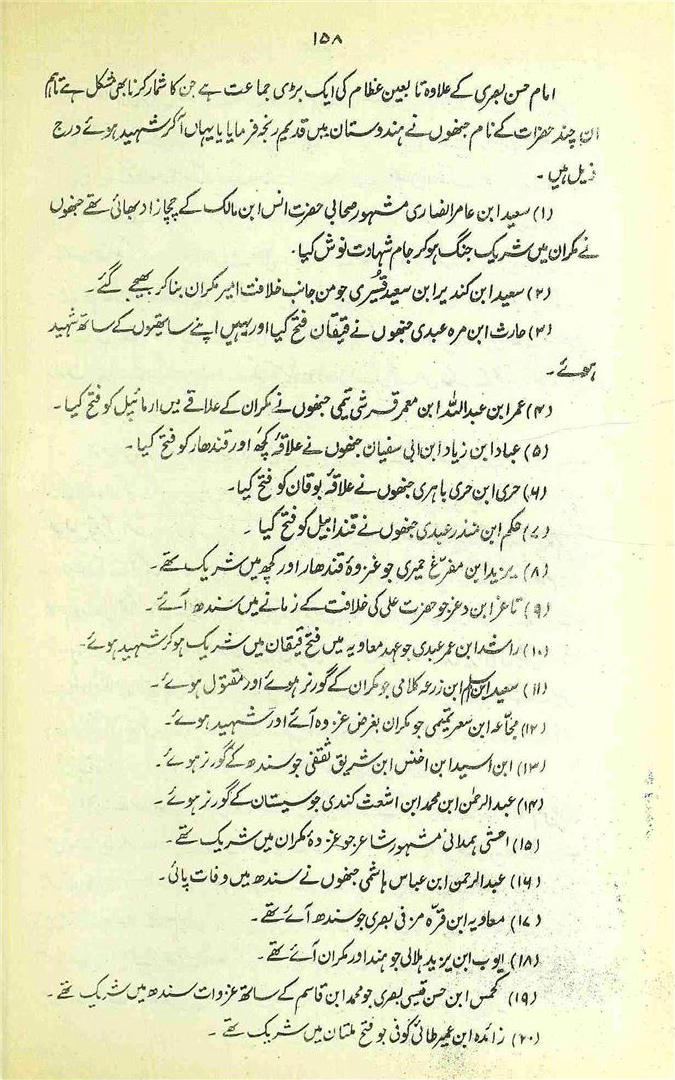 ۱۵۸
امام حسن بصری کے علاوہ تابعین عظام کی ایک بڑی جماعت ہے جن کا شمار کرنا بھی مشکل ہے تاہم
ان چند حضرات کے نام جنھوں نے ہندوستان میں قدیم رنجہ فرمایا یا یہاں آکر شہید ہوئے درج
ذیل ہیں۔
(۱) سعید ابن عامر انصاری مشہور صحابی حضرت انس ابن مالک کے چچازاد بھائی تھے جنھوں
نے مکران میں شریک جنگ ہوکر جام شہادت نوش کیا۔
(۲) سعید ابن کندیر ابن سعید قسیری جو من جانب خلافت امیر مکران بناکر بھیجے گئے۔
(۳) حارث ابن مرہ عبدی جنھوں نے قیقان فتح کیا اور یہیں اپنے ساتھیوں کے ساتھ شہید
ہوئے۔
(۴) عمر ابن عبداللہ ابن معمر قرشی تیمی جنھوں نے مکران کے علاقے میں ارمائیل کو فتح کیا۔
(۵) عباد ابن زیاد ابن ابی سفیان جنھوں نے علاقۂ کچھ اور قندھار کو فتح کیا۔
(۶) حری ابن حری باہری جنھوں نے علاقۂ بوقان کو فتح کیا۔
(۷) حکم ابن منذر عبدی جنھوں نے قندابیل کو فتح کیا۔
(۸) یزید ابن مفرغ حمیری جو غزوۂ قندھار اور کچھ میں شریک تھے۔
(۹) تاغر ابن دعر جو حضرت علی کی خلافت کے زمانے میں سندھ آئے۔
(۱۰) راشد ابن عمر عبدی جو عہد معاویہ میں فتح قیقان میں شریک ہوکر شہید ہوئے۔
(۱۱) سعید ابن اسلم ابن زرعہ کلامی جو مکران کے گورنر ہوئے اور مقتول ہوئے۔
(۱۲) مجاعہ ابن سعر تمیمی جو مکران بغرض غزوہ آئے اور شہید ہوئے۔
(۱۳) ابن اسید ابن اخنس ابن شریق ثقفی جو سندھ کے گورنر ہوئے۔
(۱۴) عبدالرحمٰن ابن محمد ابن اشعث کندی جو سیستان کے گورنر ہوئے۔
(۱۵) اعشی ہمدانی مشہور شاعر جو غزدۂ مکران میں شریک تھے۔
(۱۶) عبدالرحمن ابن عباس ہاشمی جنھوں نے سندھ میں وفات پائی۔
(۱۷) معاویہ ابن قرّہ مزنی بصری جو سندھ آئے تھے۔
(۱۸) ایوب ابن یزید ہلالی جو ہند اور مکران آئے تھے۔
(۱۹) کہمس ابن حسن قیسی بصری جو محمد ابن قاسم کے ساتھ غزوات سندھ میں شریک تھے۔
(۲۰) زائدہ ابن عمیر طائی کوفی جو فتح ملتان میں شریک تھے۔